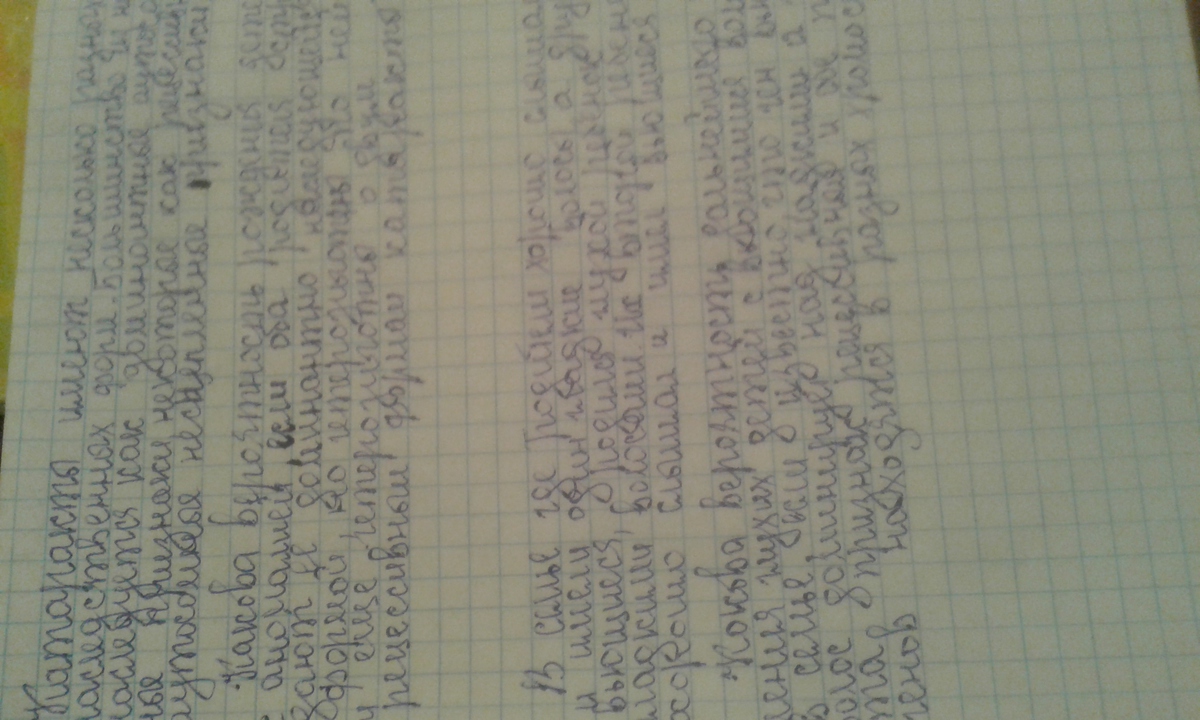 Катаракты имеют несколько разно
наследственных форм. Большинство из н
наследуется как доминантные аутосо
ные признаки некоторые как рецессивн
аутосомные несцепленные признаки
Какова вероятность рождения дете
с аномалией если оба родителя стр
дают ее доминантно наследующейся
формой, но гетерозиготны по ней
и еще гетерозиготны о двум
рецессивным формам катаракты
В семье где Родители хорошо слышал
и имели один гладкие волосы а дру
вьющиеся, родился глухой
гладкими волосами Их второй ребено
хорошо слышал и имел вьющиеся
Какова вероятность дальнейшего
дения глухих детей с вьющимися вол
в семье если известно что ген вью
волос доминирует над гладкими а
та признак рецессивный и обе п
генов находятся в разных хромос